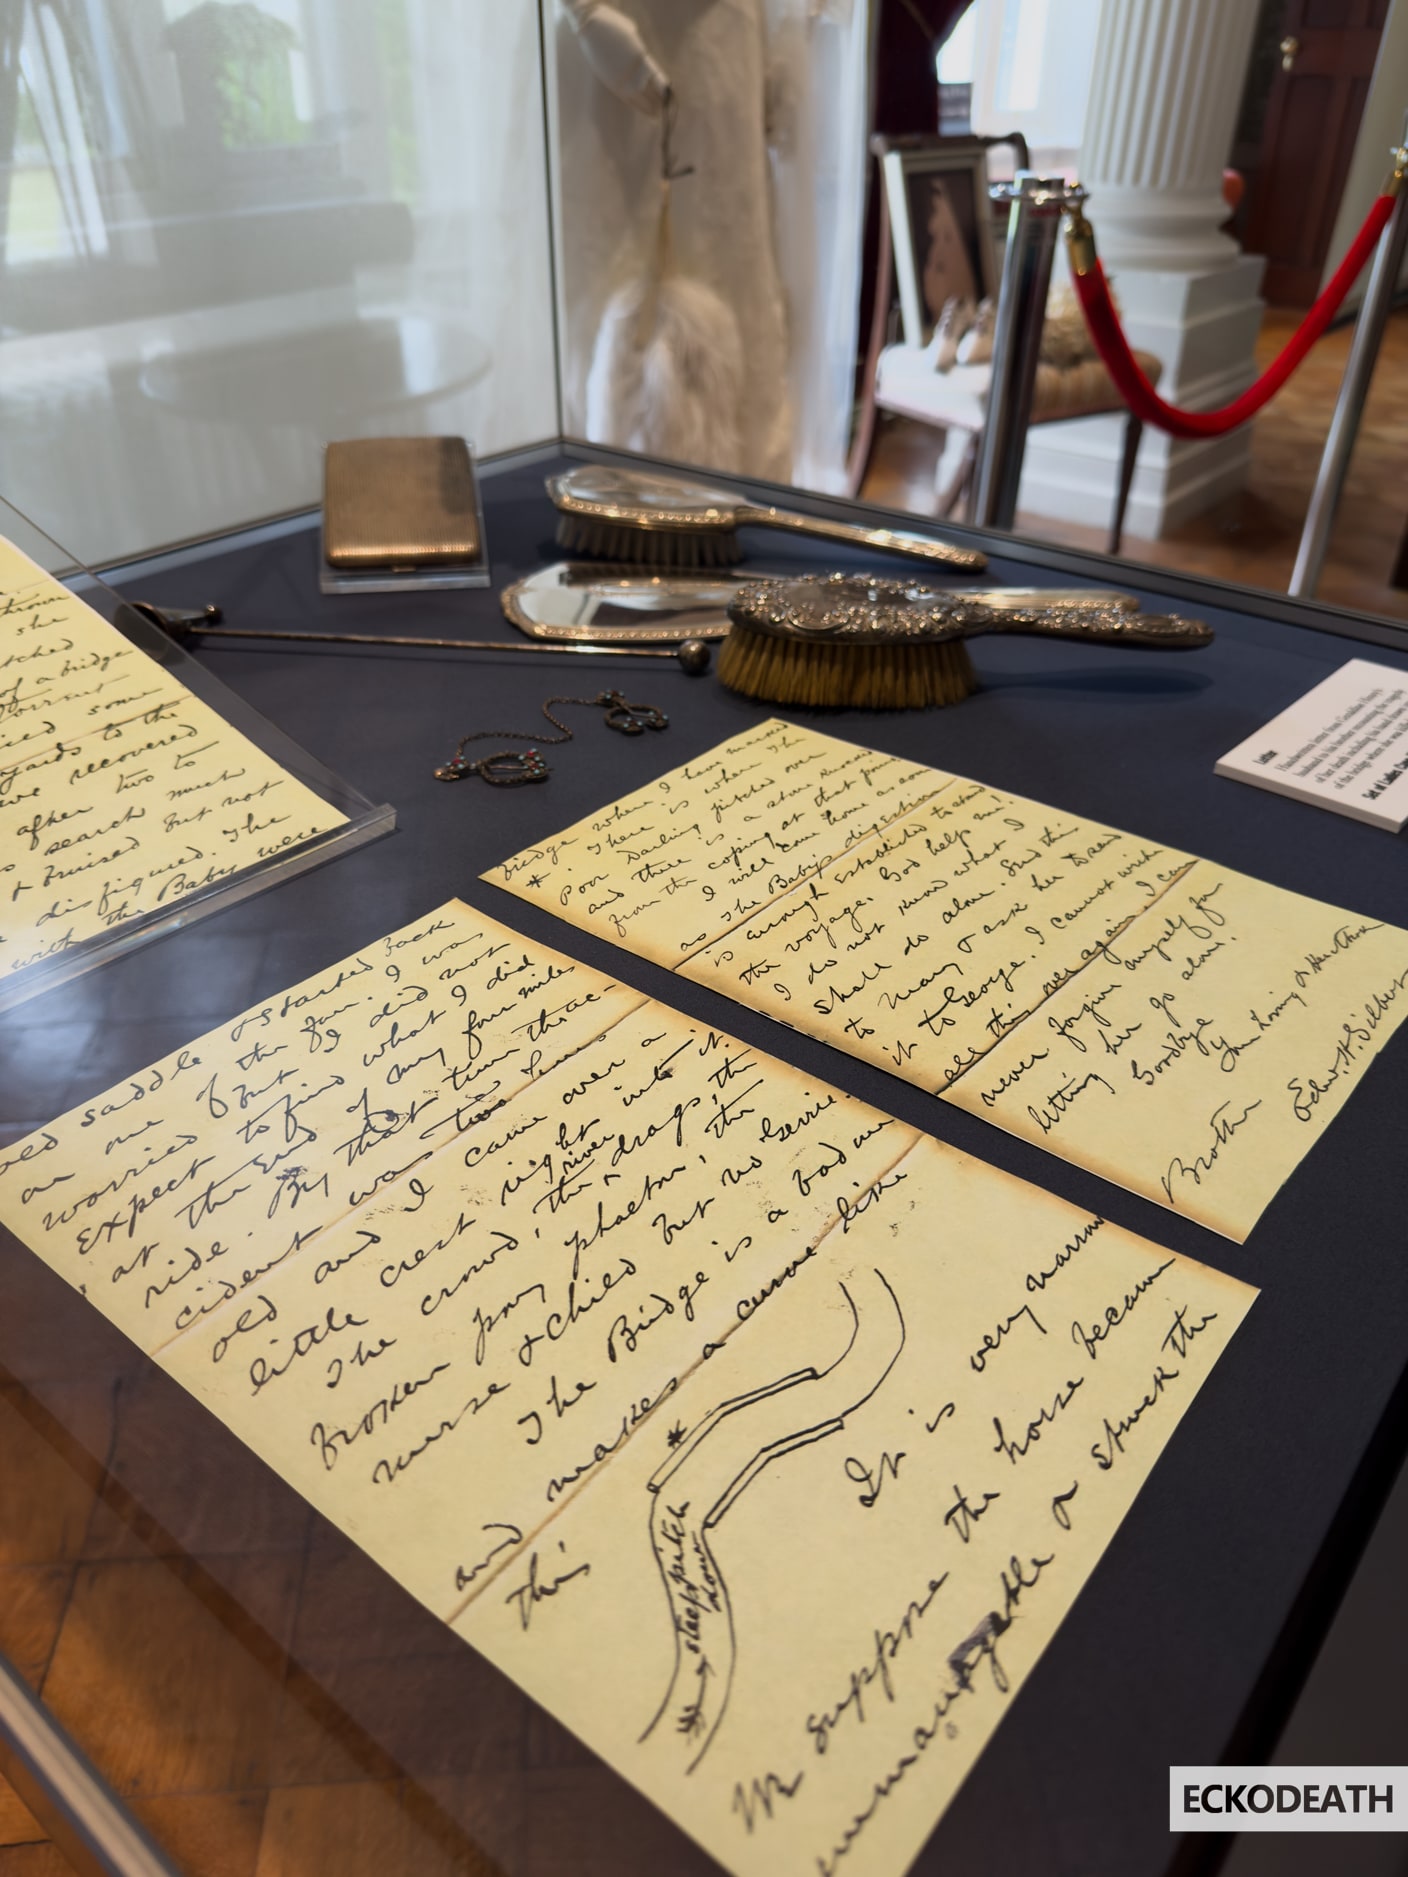 thrown
she
pitched
of a bridge
torrent
some
yards to the
we recovered
after two to
search much
& bruised but not
disfigured. The
with the Baby were
old saddle & started back
an one of the far. I was
worried but I did not
expect to find what I did
at the End of my four mile
ride. By that time the ac-
cident was two hours
old and I came over a
little crest right into it.
The crowd, the river & drags, the
broken pony phaeton, the
nurse & child but no Gerrie.
The Bridge is a bad one
and makes a curve like
this
*
steep pitch
down
It is very narrow
We suppose the horse became
unmanageable or struck the
Bridge where I have marked
* There is where the
poor Darling pitched over
and there is a stone knocked
from the coping at that point
I will come home as soon
as the Baby's digestion
is enough established to stand
the voyage. God help me!
I do not know what I
shall do alone. Send this
to Mary & ask her to send
it to George. I cannot write
all this over again. I can
never forgive myself for
letting her go alone.
Goodbye
Your loving &
Brother
Edw. H. Gilbert
Letter